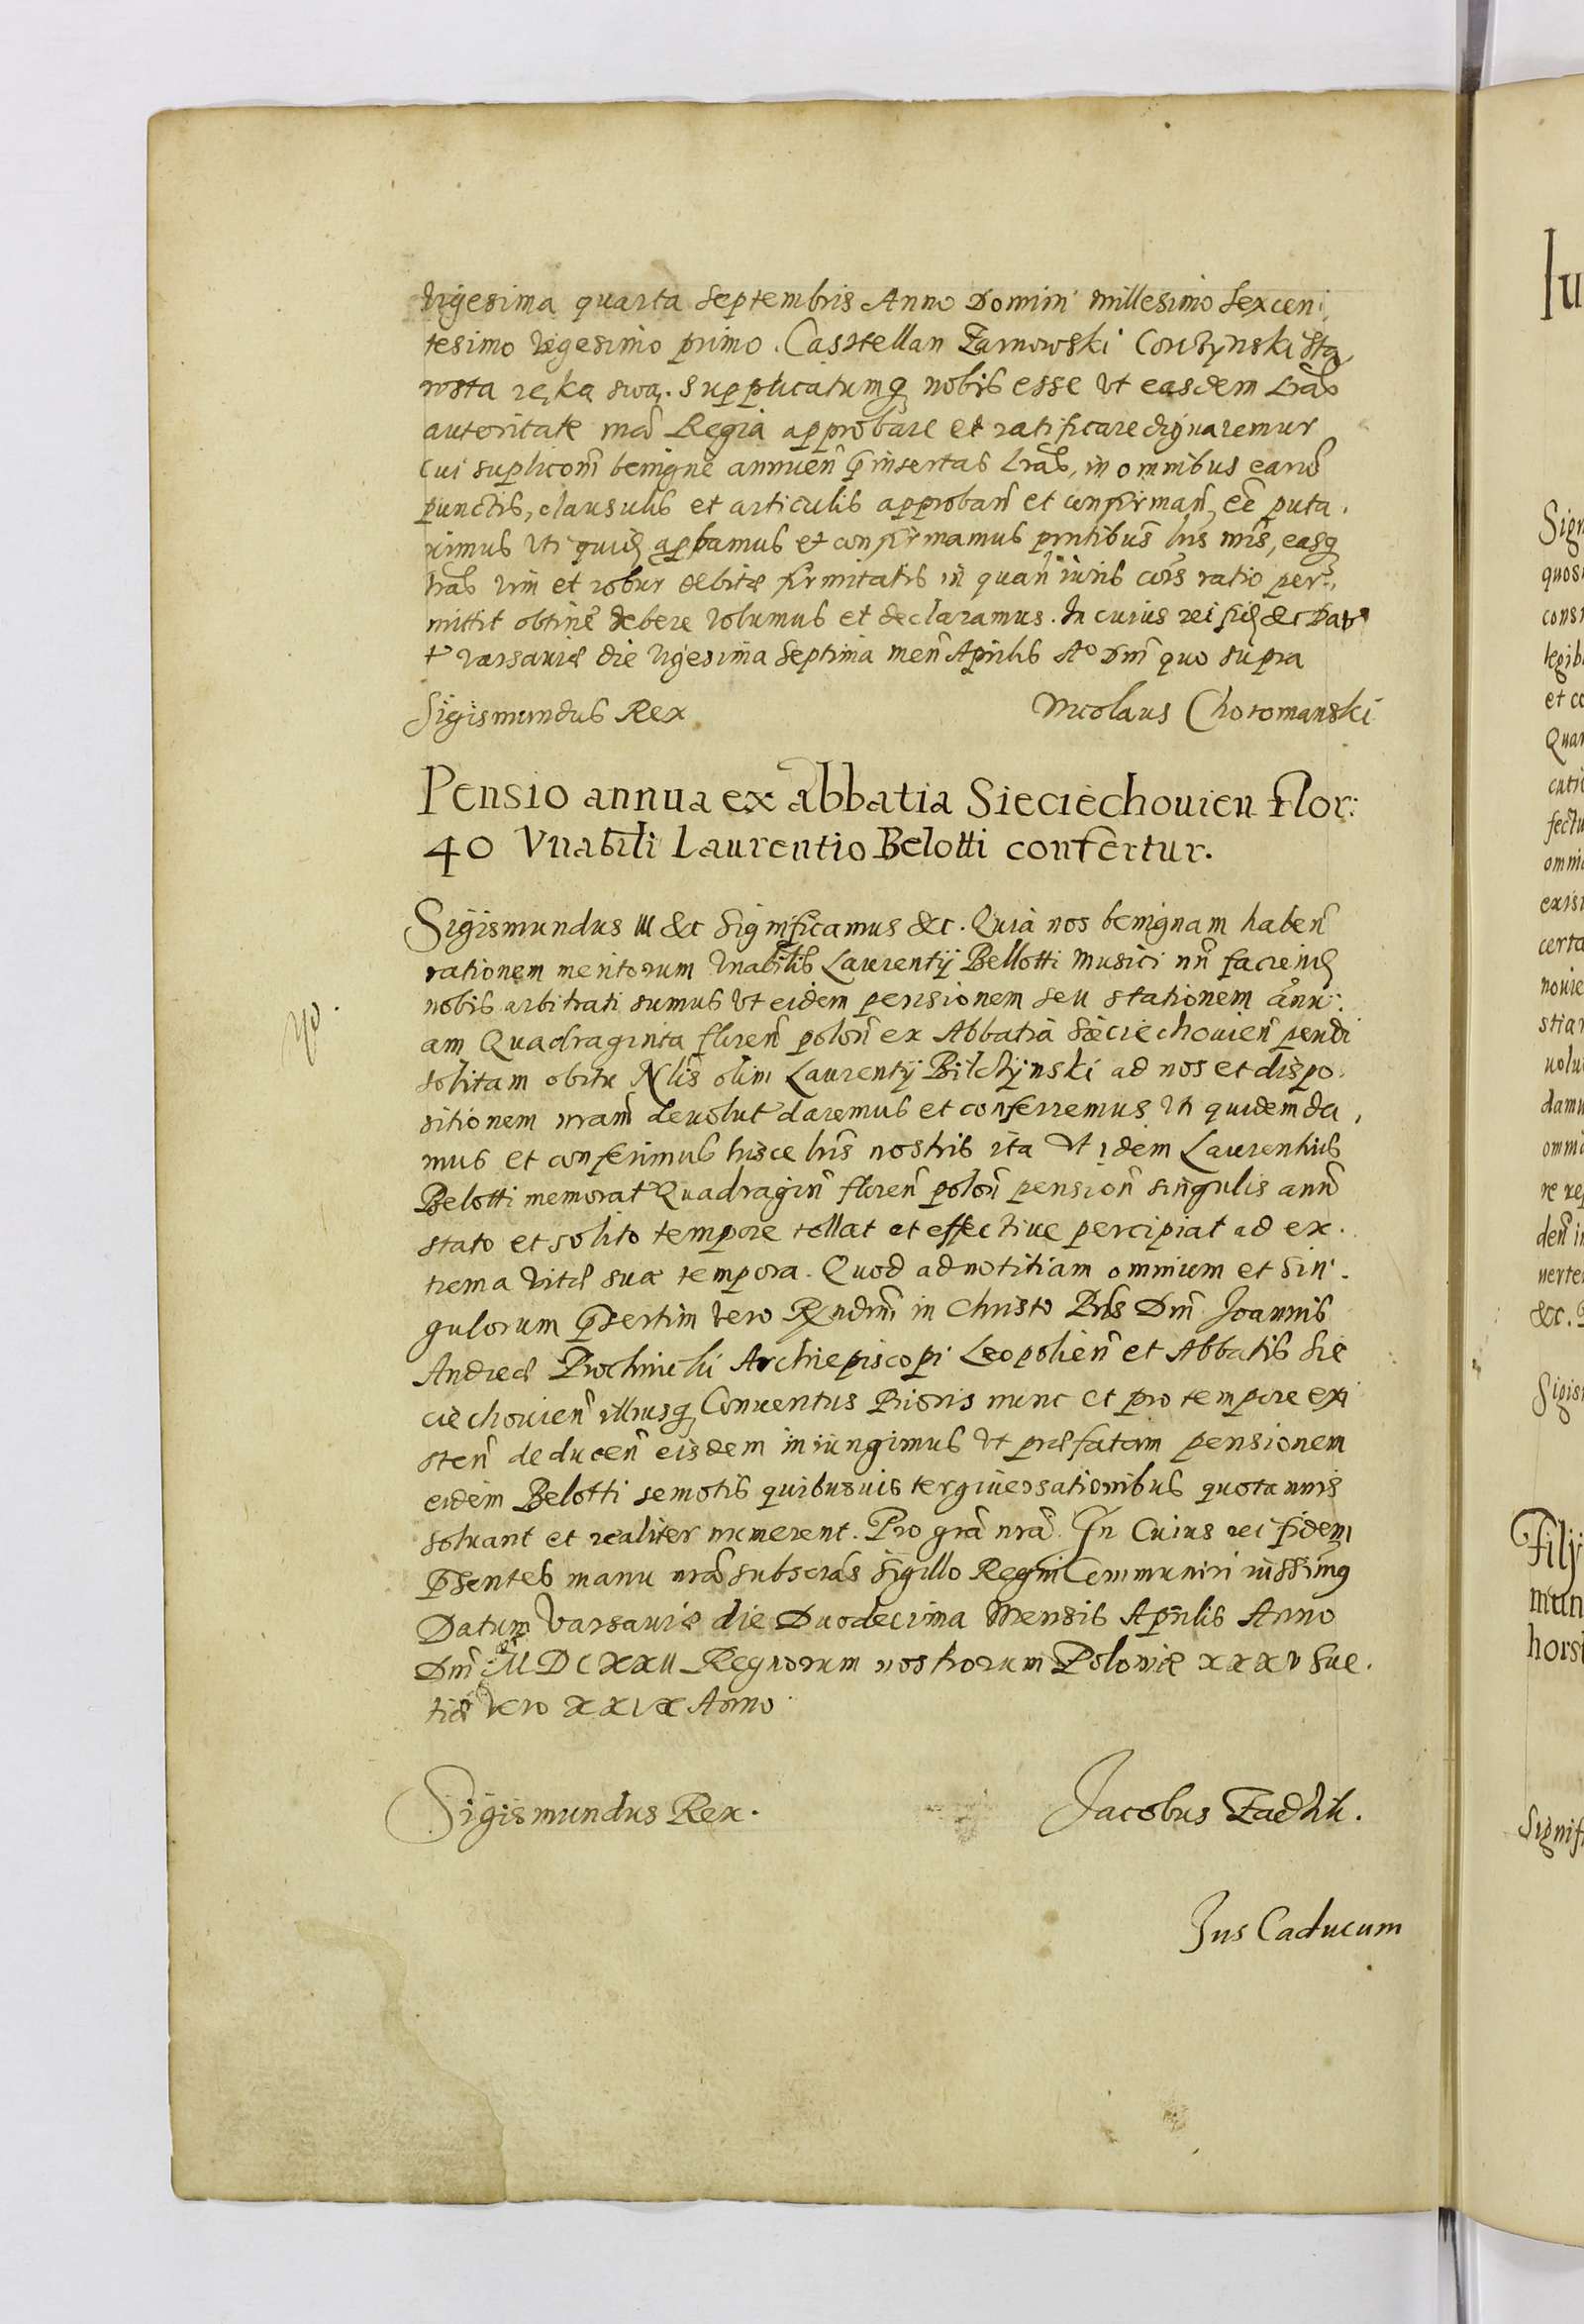 Vigesima quarta Septembris Anno Domini millesimo Sexcen
tesimo Vigesimo primo. Castellan Zarnowski Corczynski Sta
rosta ręką swą. Supplicatumq nobis esse Vt easdem Lras
autoritate nra Regia approbare et ratificare dignaremur
Cui supliconi benigne annuen pinsertas Lras, in omnibus earu
punctis, clausulis et articulis approban et confirman, ee puta
vimus Vti quid apbamus et confirmamus pntibus lris nris, easq
lras Vim et robur debitæ firmitatis in quan iuris cois ratio per
mittit obtine debere Volumus et declaramus. In cuius rei fid &c Dat
Varsaviæ die Vigesima Septima men Aprilis Ao Dni quo supra
Sigismundus Rex
Nicolaus Choromanski
Pensio annua ex abbatia Sieciechovien Flor:
40 Vnabili Laurentio Belotti confertur.
Sigismundus III &c Significamus &c. Quia nos benignam haben
rationem meritorum Vnabilis Laurentij Bellotti Musici nri faciend
nobis arbitrati sumus Vt eidem pensionem seu stationem annu:
am Quadraginta floren polon ex Abbatia Sieciechovien pendi
solitam obitu Nlis olim Laurentij Bilczynski ad nos et dispo
sitionem nram devolut daremus et conferremus Vti quidem da
mus et conferimus hisce lris nostris ita Vt idem Laurentius
Belotti memorat Quadragin floren polon pension singulis ann
stato et solito tempore tollat et effective percipiat ad ex
trema Vitæ suæ tempora. Quod ad notitiam omnium et Sin
gulorum psertim Vero Rndmi in Christo Pris Dni Joannis
Andreæ Prochnicki Archiepiscopi Leopolien et Abbatis Sie
ciechovien illiusq Conventus Prioris nunc et pro tempore exi
sten deducen eisdem iniungimus Vt præfatam pensionem
eidem Belotti semotis quibusvis tergiversationibus quotannis
solvant et realiter numerent. Pro gra nra. In Cuius rei fidem
psentes manu nra subscras Sigillo Regni Communiri iussimq
Datum Varsaviæ die Duodecima Mensis Aprilis Anno
Dni MDCXXII Regnorum nostrorum Poloniæ XXXV Sue
tiæ Vero XXIX Anno
Sigismundus Rex.
Jacobus Zadzik.
Jus Caducum